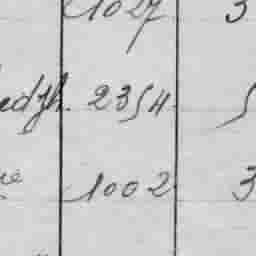 1027 3
edzh. 2354 5
1002 3